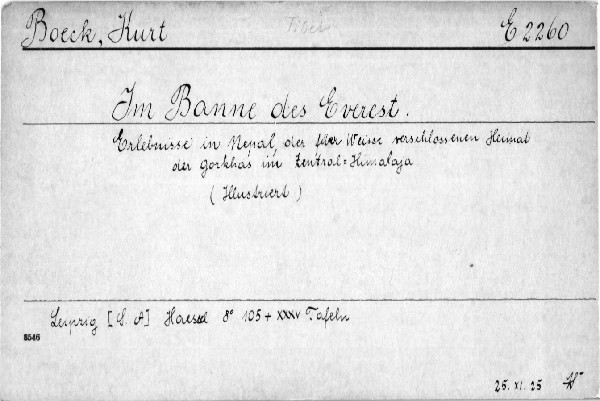 Boeck, Kurt
E 2260
Im Banne des Everest.
Erlebnisse in Nepal, der für Weisse verschlossenen Heimat
der Gorkhas im Zentral=Himalaja
(Illustriert)
Leipzig [S. A] Haessel 8° 105 + XXXV Tafeln
8546
25. XI. 25